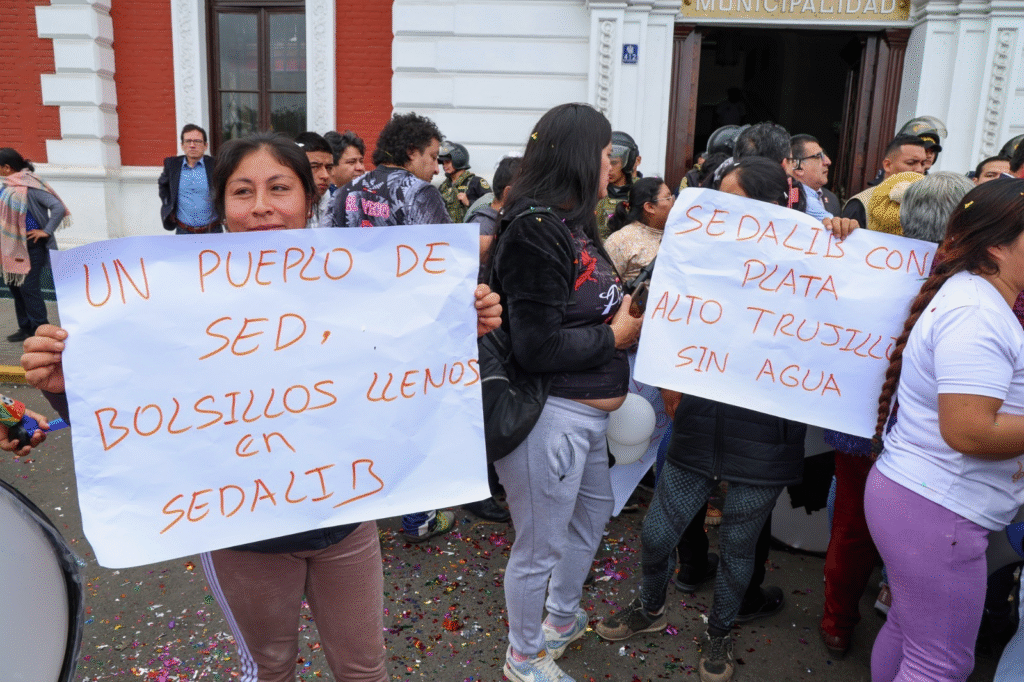 MUNICIPALIDAD
UN PUEPLO DE
SED,
BOLSILLOS LLENOS
en
SEDALIB
SEDALIB CON
PLATA
ALTO TRUJILLO
SIN AGUA